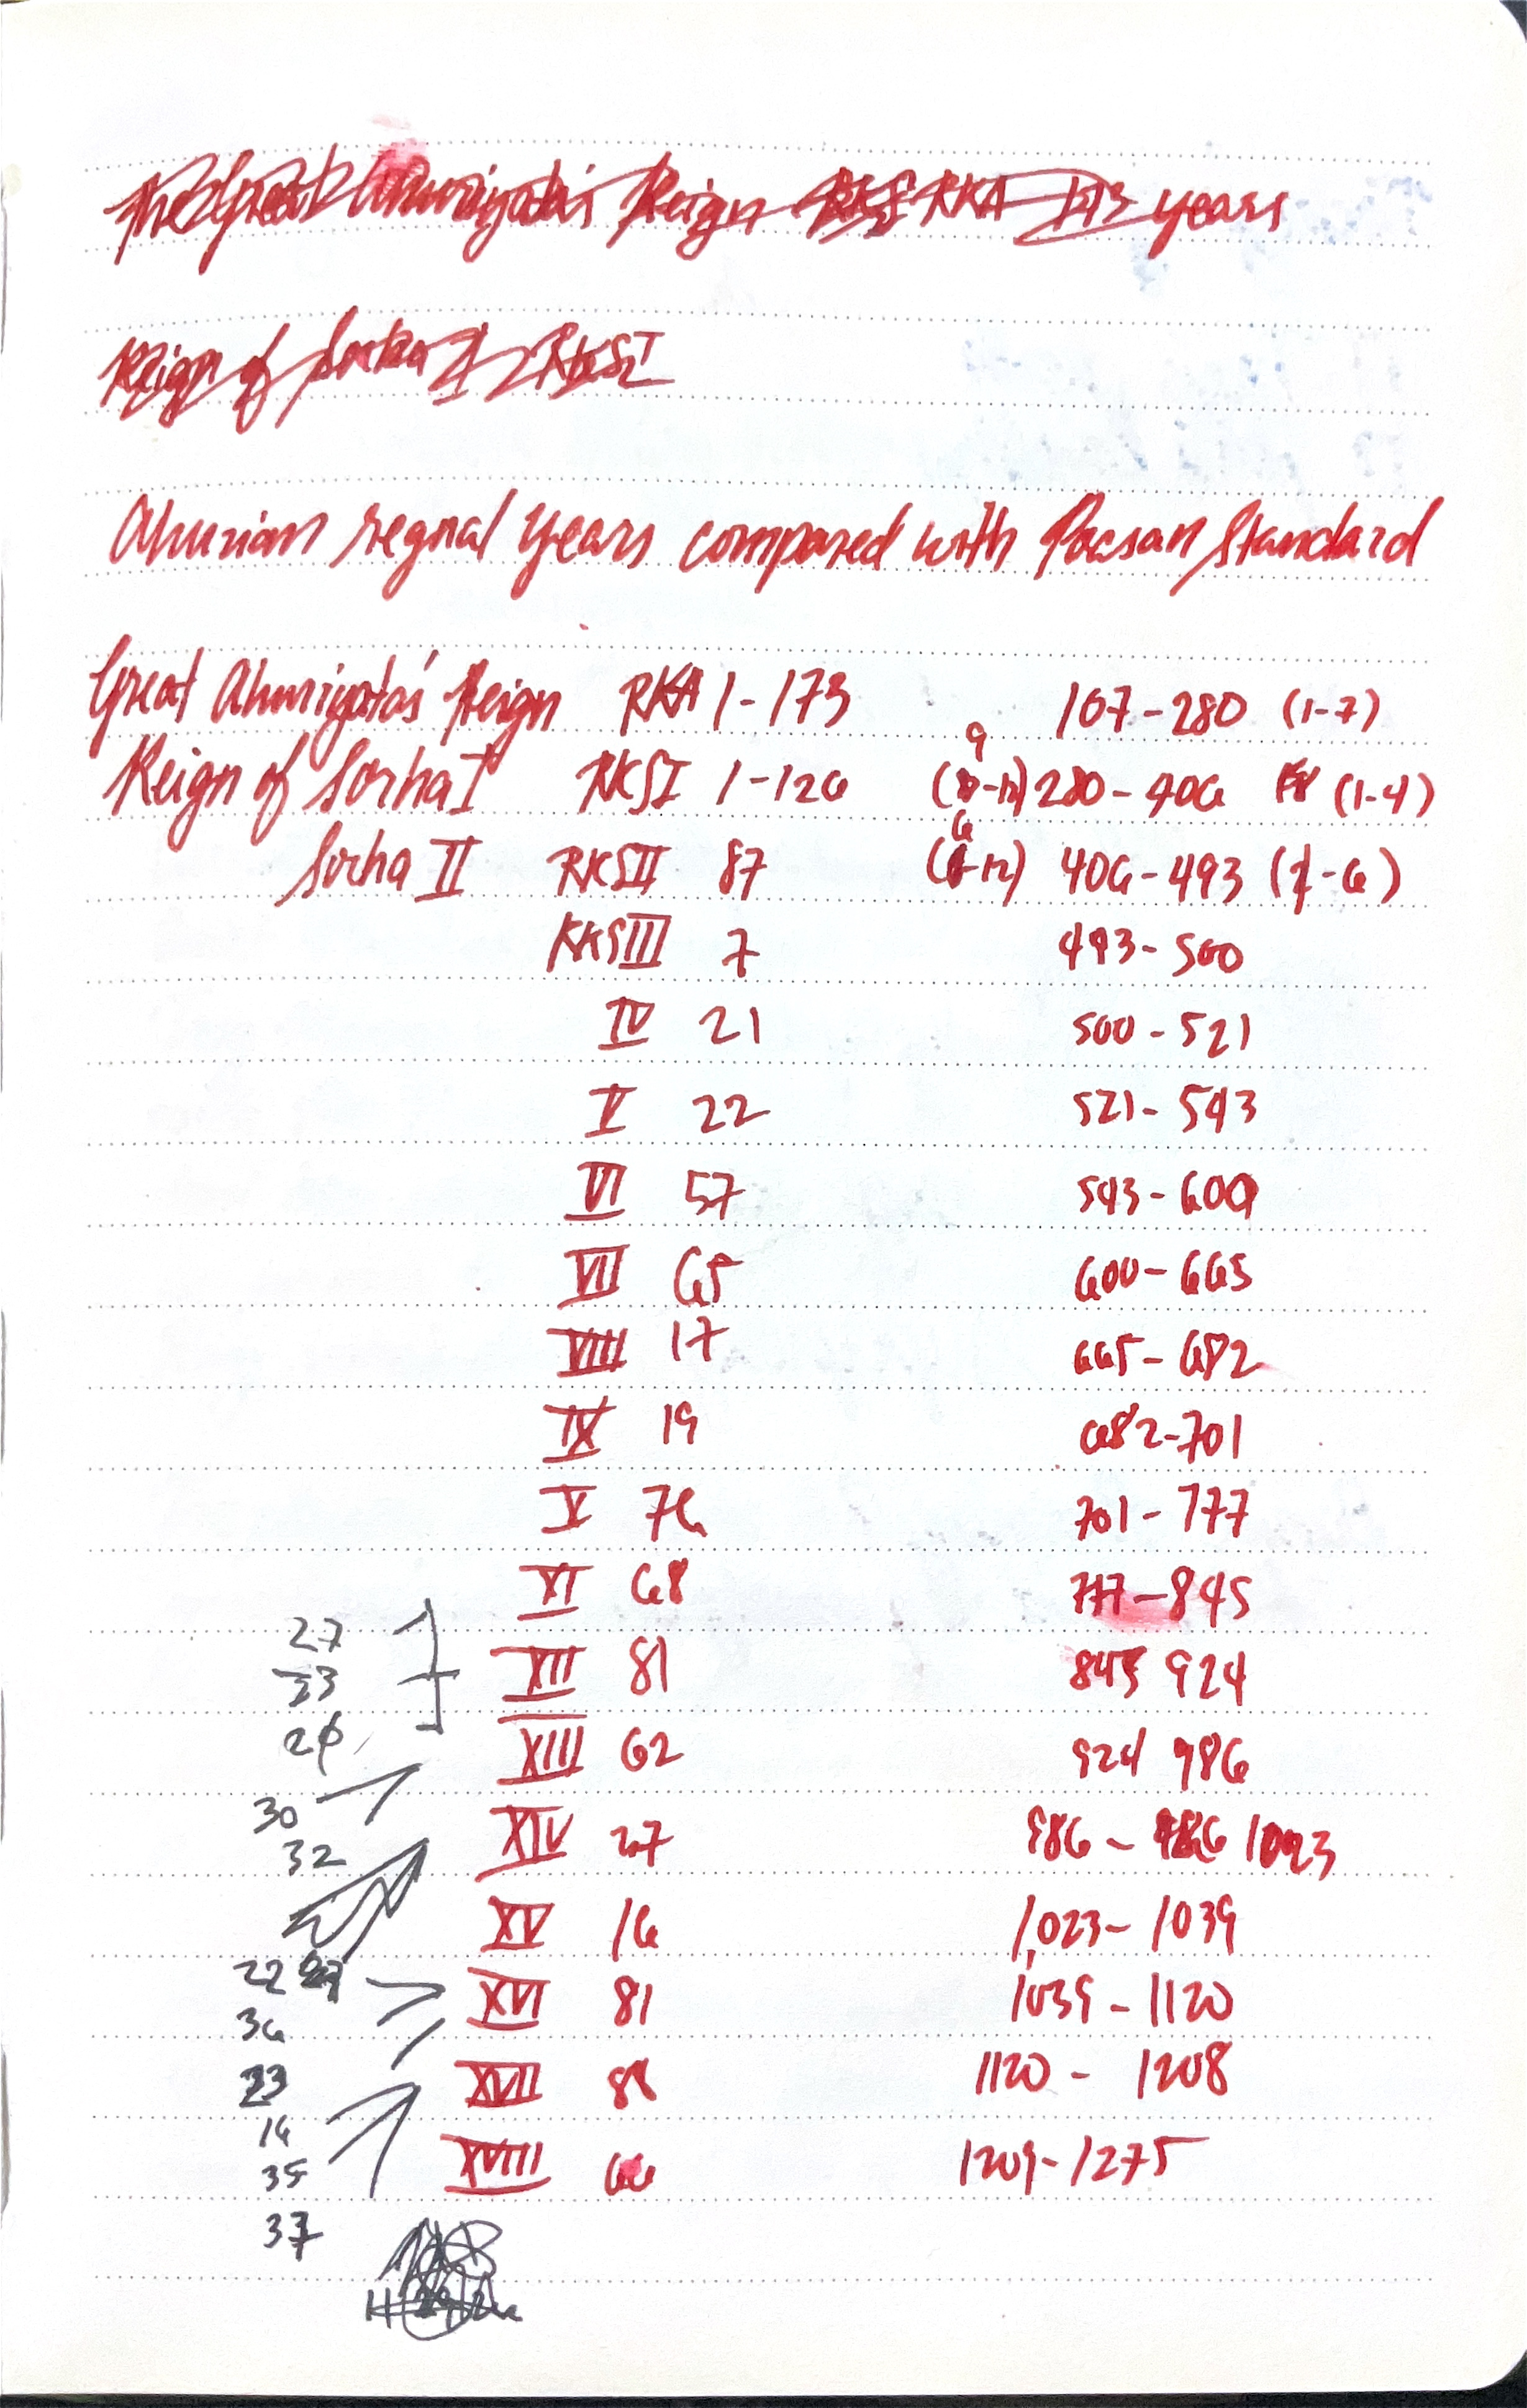 The Great Ahuriyata's Reign RKA 173 years
Reign of Sorha I RKSI
Ahurian regnal years compared with Pacsan Standard
Great Ahuriyata's Reign RKA 1-173 107-280 (1-7)
Reign of Sorha I RKSI 1-126 (9-12) 280-406 (1-4)
Sorha II RKSII 87 (6-12) 406-493 (1-6)
RKSIII 7 493-500
IV 21 500-521
V 22 521-543
VI 57 543-600
VII 65 600-665
VIII 17 665-682
IX 19 682-701
V 76 701-777
XI 68 777-845
27
XII 81 845 924
33
XIII 62 924 986
30
XIV 27 986 - 986 1023
32
XV 16 1,023-1039
22
XVI 81 1039-1120
36
XVII 88 1120 - 1208
23
16
XVIII 66 1209-1275
35
37